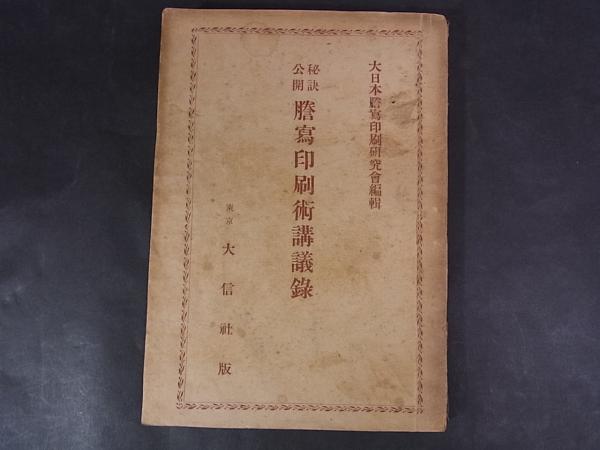 大日本謄寫印刷研究會編輯
秘訣
公開
謄寫印刷術講議錄
東京
大信社版